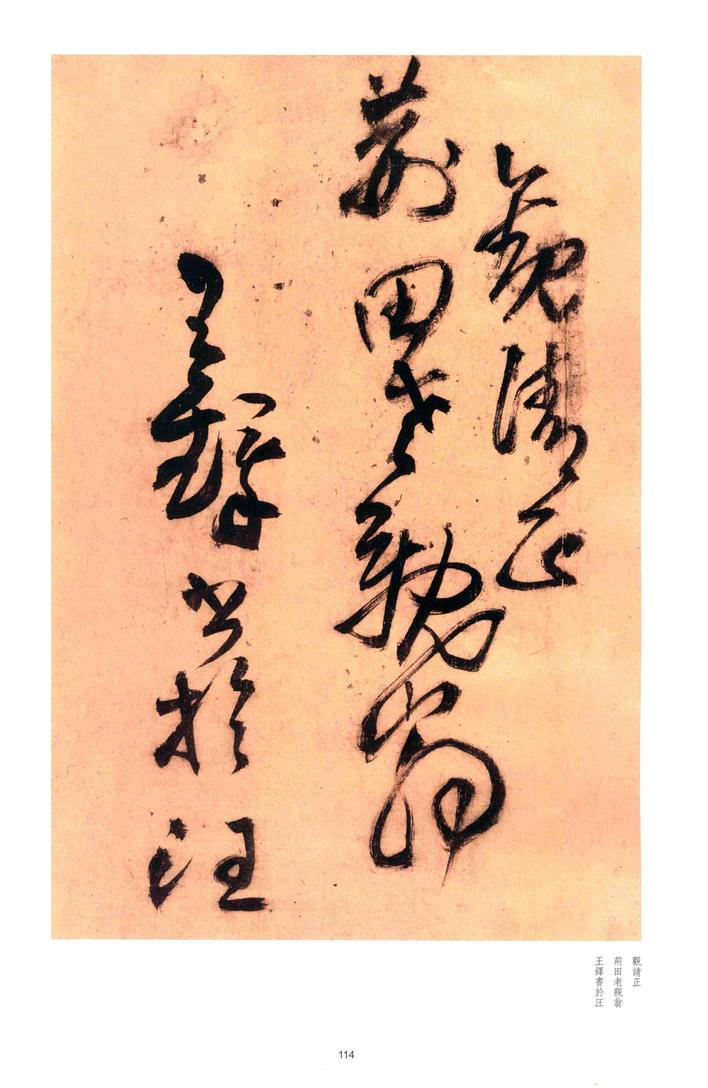 觀請正
荊田老親翁
王鐸書於汪
觀請正
荊田老親翁
王鐸書於汪
114